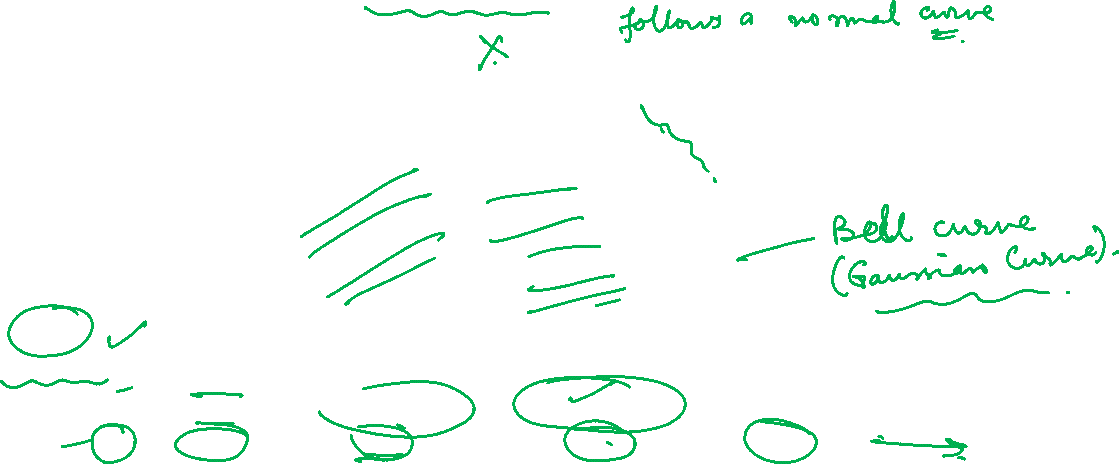 follows a normal curve
X
Bell curve
(Gaussian Curve).